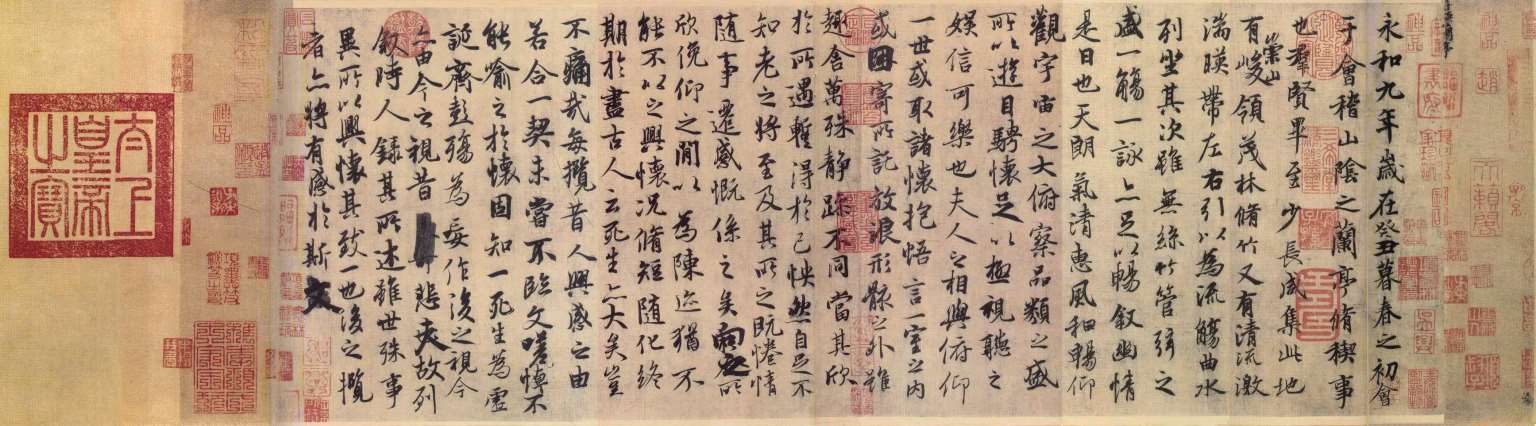 永和九年歲在癸丑暮春之初會
于會稽山陰之蘭亭脩稧事
也羣賢畢至少長咸集此地
有崇山峻領茂林脩竹又有清流激
湍暎帶左右引以為流觴曲水
列坐其次雖無絲竹管弦之
盛一觴一詠亦足以暢叙幽情
是日也天朗氣清惠風和暢仰
觀宇宙之大俯察品類之盛
所以遊目騁懷足以極視聽之
娛信可樂也夫人之相與俯仰
一世或取諸懷抱悟言一室之內
或因寄所託放浪形骸之外雖
趣舍萬殊静躁不同當其欣
於所遇蹔得於己怏然自足不
知老之將至及其所之既惓情
隨事遷感慨係之矣向之所
欣俛仰之閒以為陳迹猶不
能不以之興懷況脩短隨化終
期於盡古人云死生亦大矣豈
不痛哉每攬昔人興感之由
若合一契未嘗不臨文嗟悼不
能喻之於懷固知一死生為虛
誕齊彭殤為妄作後之視今
亦由今之視昔悲夫故列
叙時人録其所述雖世殊事
異所以興懷其致一也後之攬
者亦將有感於斯文
太上
皇帝
之寶